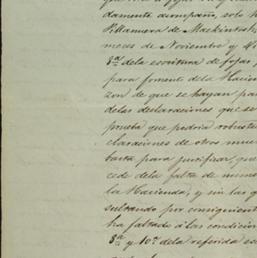 damente acompaña, solo h
Villamiera de Mackintosh
meces de Noviembre y
8ª dela escritura de fojas
para fomento dela Hacien
zon de que se hayan pa
delas declaraciones que se
prueba que podria robustec
claraciones de otros mu
basta para justificar, que
cede dela falta de
la Hacienda, y sin las q
sultando por consiguient
ha faltado a las condicion
8ª y 10ª dela referida es